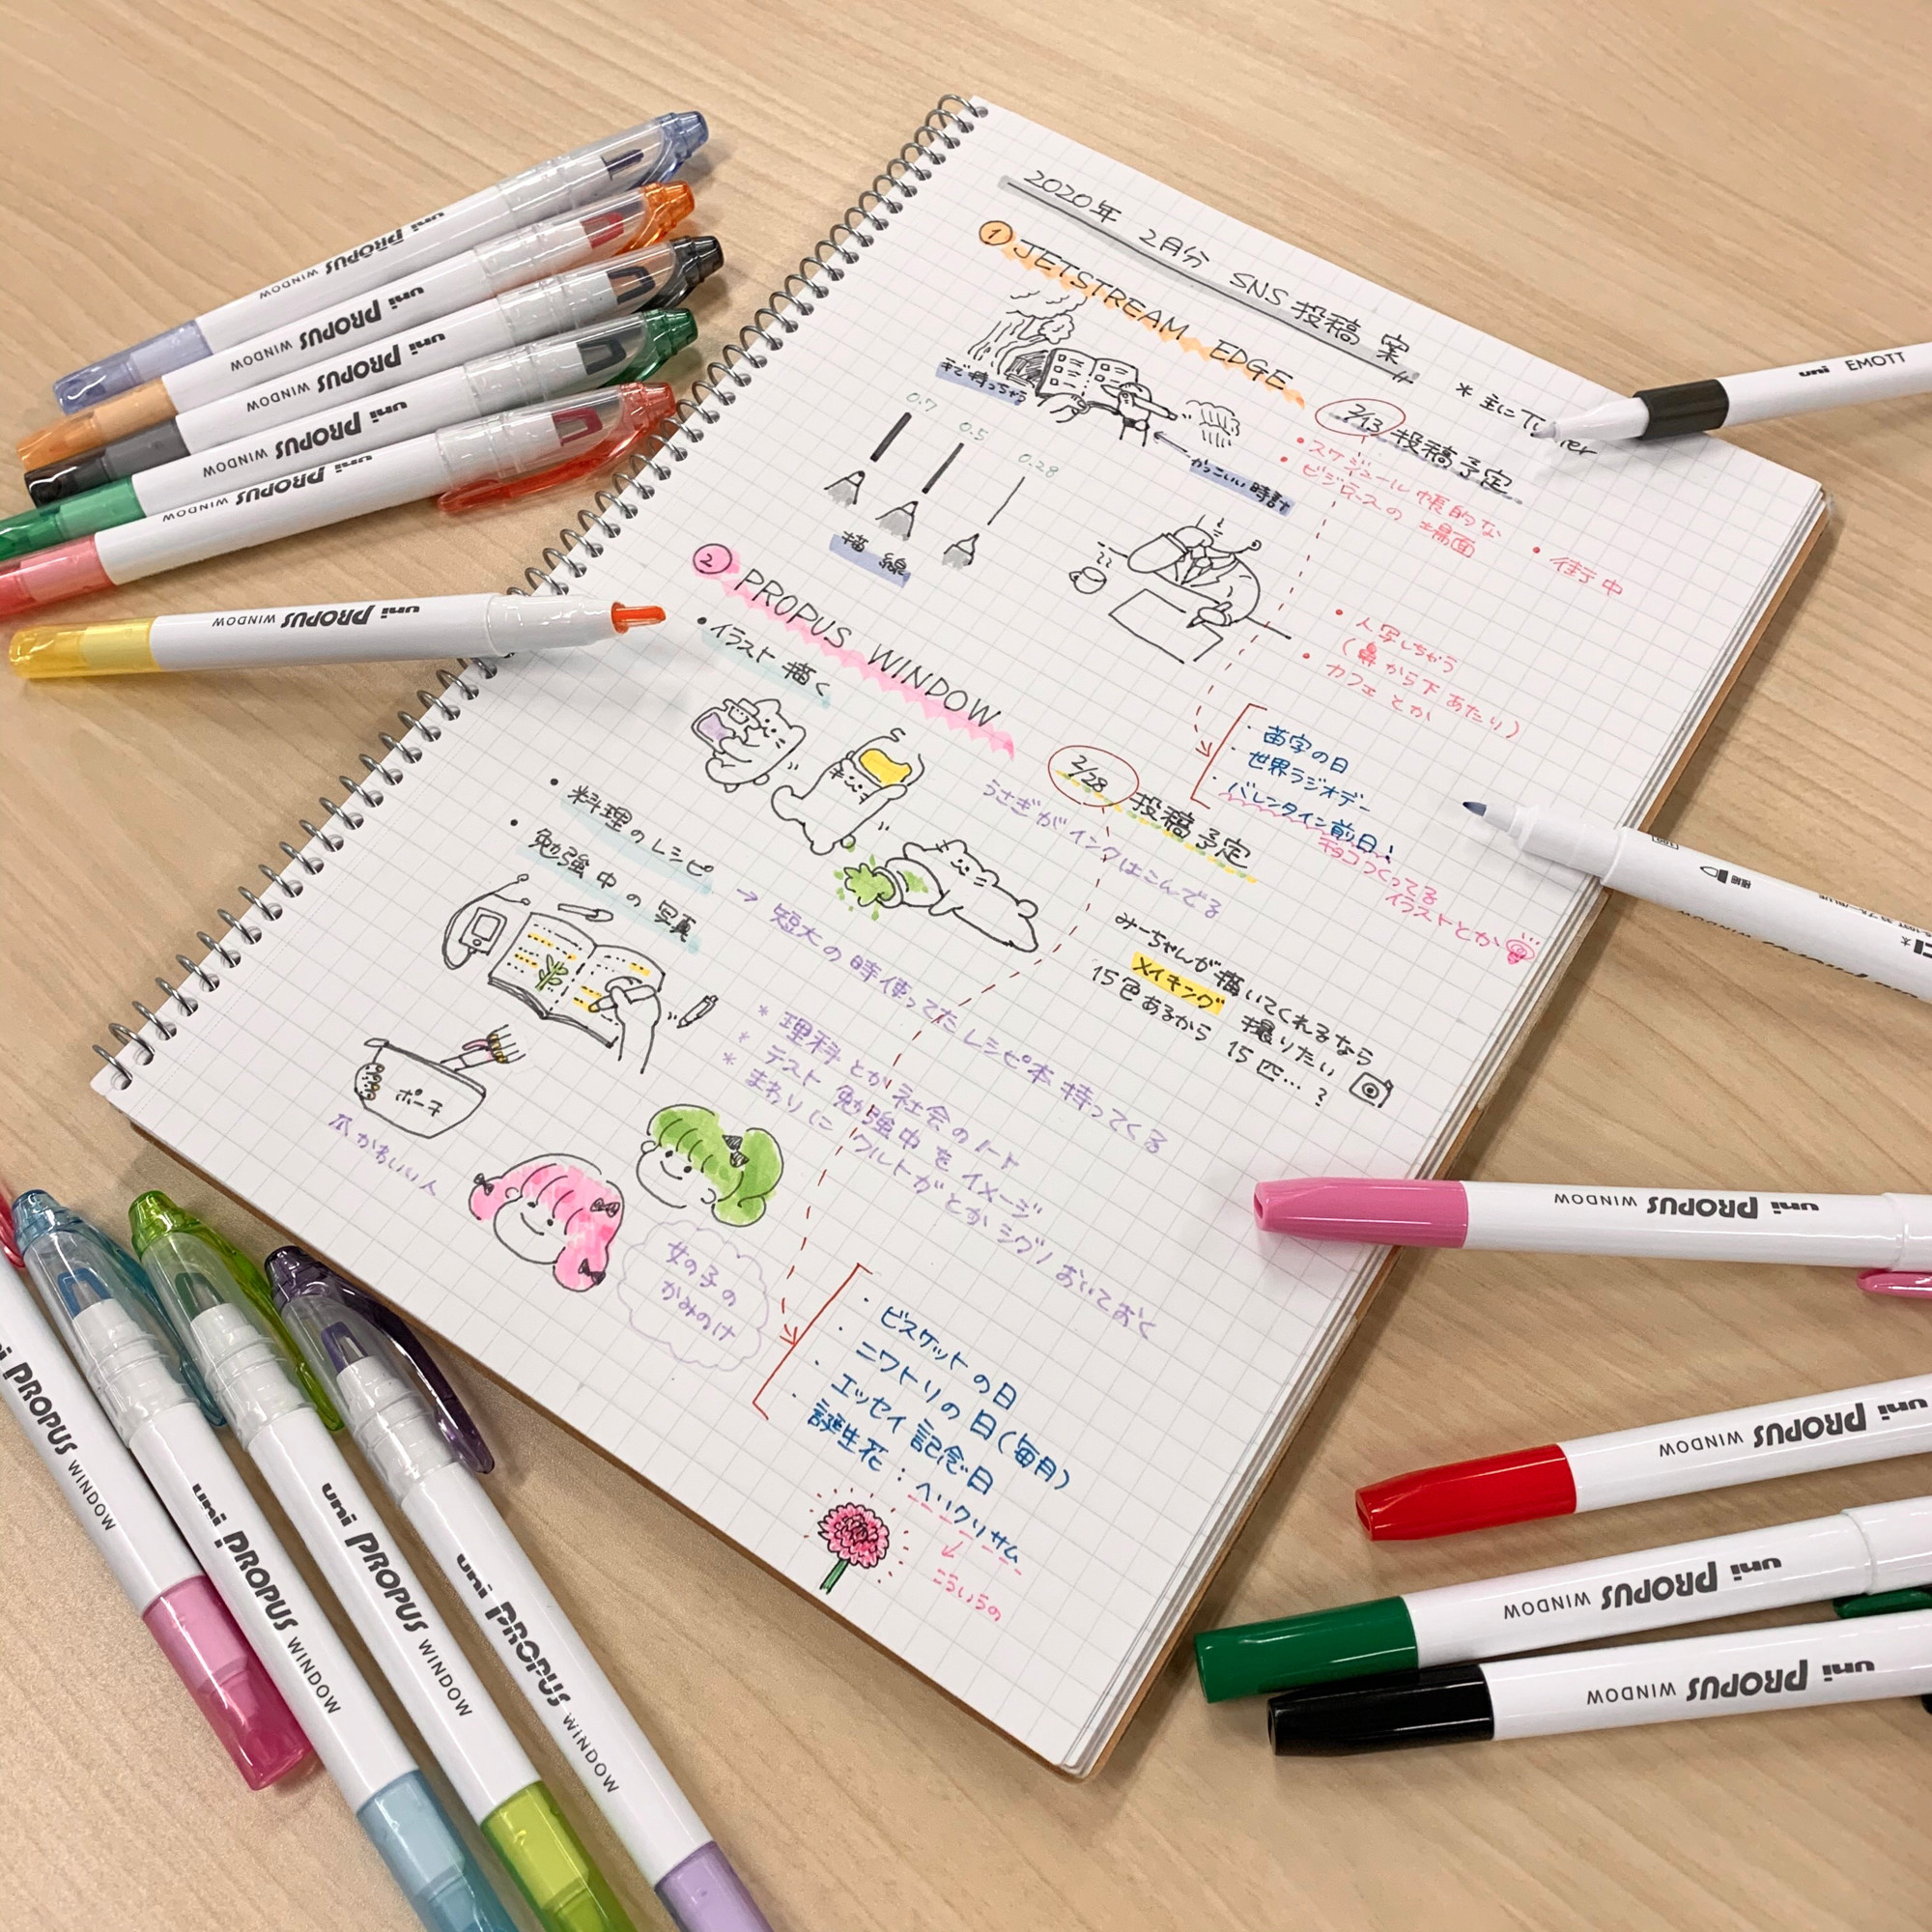 2020年 2月分 SNS投稿 案
① JETSTREAM EDGE
2/13 投稿予定
* 主に
手で持っちゃう
かっこいい時計
0.7
0.5
0.28
描線
• スケジュール帳的な
• ビジネスの場面
• 街中
• 人写しちゃう
(鼻から下あたり)
• カフェとか
・苗字の日
・世界ラジオデー
・バレンタイン前日!
チョコつくってる
イラストとか
② PROPUS WINDOW
2/28 投稿予定
• イラスト描く
うさぎがインクはこんでる
みーちゃんが描いてくれるなら
メイキング 撮りたい
15色あるから 15匹…?
• 料理のレシピ
→ 短大の時使ってたレシピ本持ってくる
• 勉強中の写真
* 理科とか社会のノート
* テスト勉強中をイメージ
* まわりにクルトガとかシグノおいておく
ポーチ
爪かわいい人
女の子の
かみのけ
・ビスケットの日
・ニワトリの日(毎月)
・エッセイ記念日
・誕生花:ヘリクリサム
こういうの
uni PROPUS WINDOW
uni PROPUS WINDOW
uni PROPUS WINDOW
uni PROPUS WINDOW
uni PROPUS WINDOW
uni PROPUS WINDOW
uni EMOTT
uni PROPUS WINDOW
uni PROPUS WINDOW
uni PROPUS WINDOW
uni PROPUS WINDOW
uni PROPUS WINDOW
uni PROPUS WINDOW
uni PROPUS WINDOW
uni PROPUS WINDOW